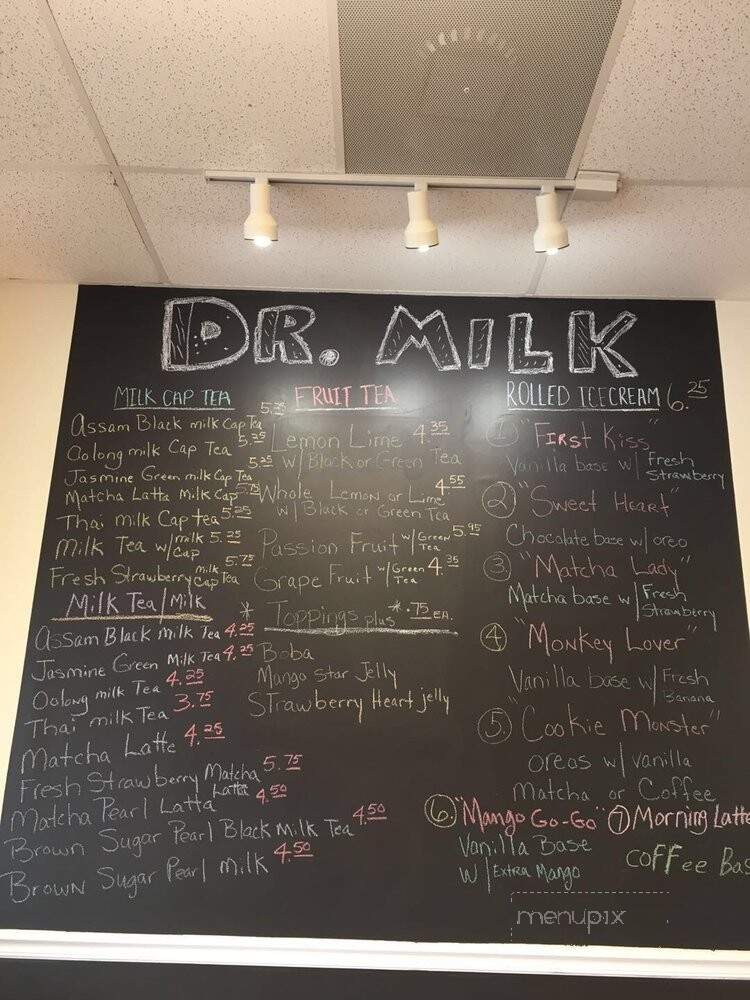 DR. MILK
MILK CAP TEA
Assam Black milk Cap Tea 5.25
Oolong milk Cap Tea 5.25
Jasmine Green milk Cap Tea 5.25
Matcha Latta Milk Cap 5.75
Thai milk Cap tea 5.25
Milk Tea w/ milk Cap 5.25
Fresh Strawberry milk cap Tea 5.75
Milk Tea/Milk
Assam Black Milk Tea 4.25
Jasmine Green Milk Tea 4.25
Oolong milk Tea 4.25
Thai milk Tea 3.75
Matcha Latte 4.25
Fresh Strawberry Matcha Latta 5.75
Matcha Pearl Latta 4.50
Brown Sugar Pearl Black Milk Tea 4.50
Brown Sugar Pearl Milk 4.50
FRUIT TEA
Lemon Lime 4.35
w/ Black or Green Tea
Whole Lemon or Lime 4.55
w/ Black or Green Tea
Passion Fruit w/ Green Tea 5.95
Grape Fruit w/ Green Tea 4.35
* Toppings plus * .75 EA.
Boba
Mango Star Jelly
Strawberry Heart jelly
ROLLED ICECREAM 6.25
① "First Kiss"
Vanilla base w/ Fresh Strawberry
② "Sweet Heart"
Chocolate base w/ oreo
③ "Matcha Lady"
Matcha base w/ Fresh Strawberry
④ "Monkey Lover"
Vanilla base w/ Fresh Banana
⑤ "Cookie Monster"
oreos w/ vanilla
Matcha or Coffee
⑥ "Mango Go-Go"
Vanilla Base
w/ Extra Mango
⑦ Morning Latte
Coffee Bas
menupix